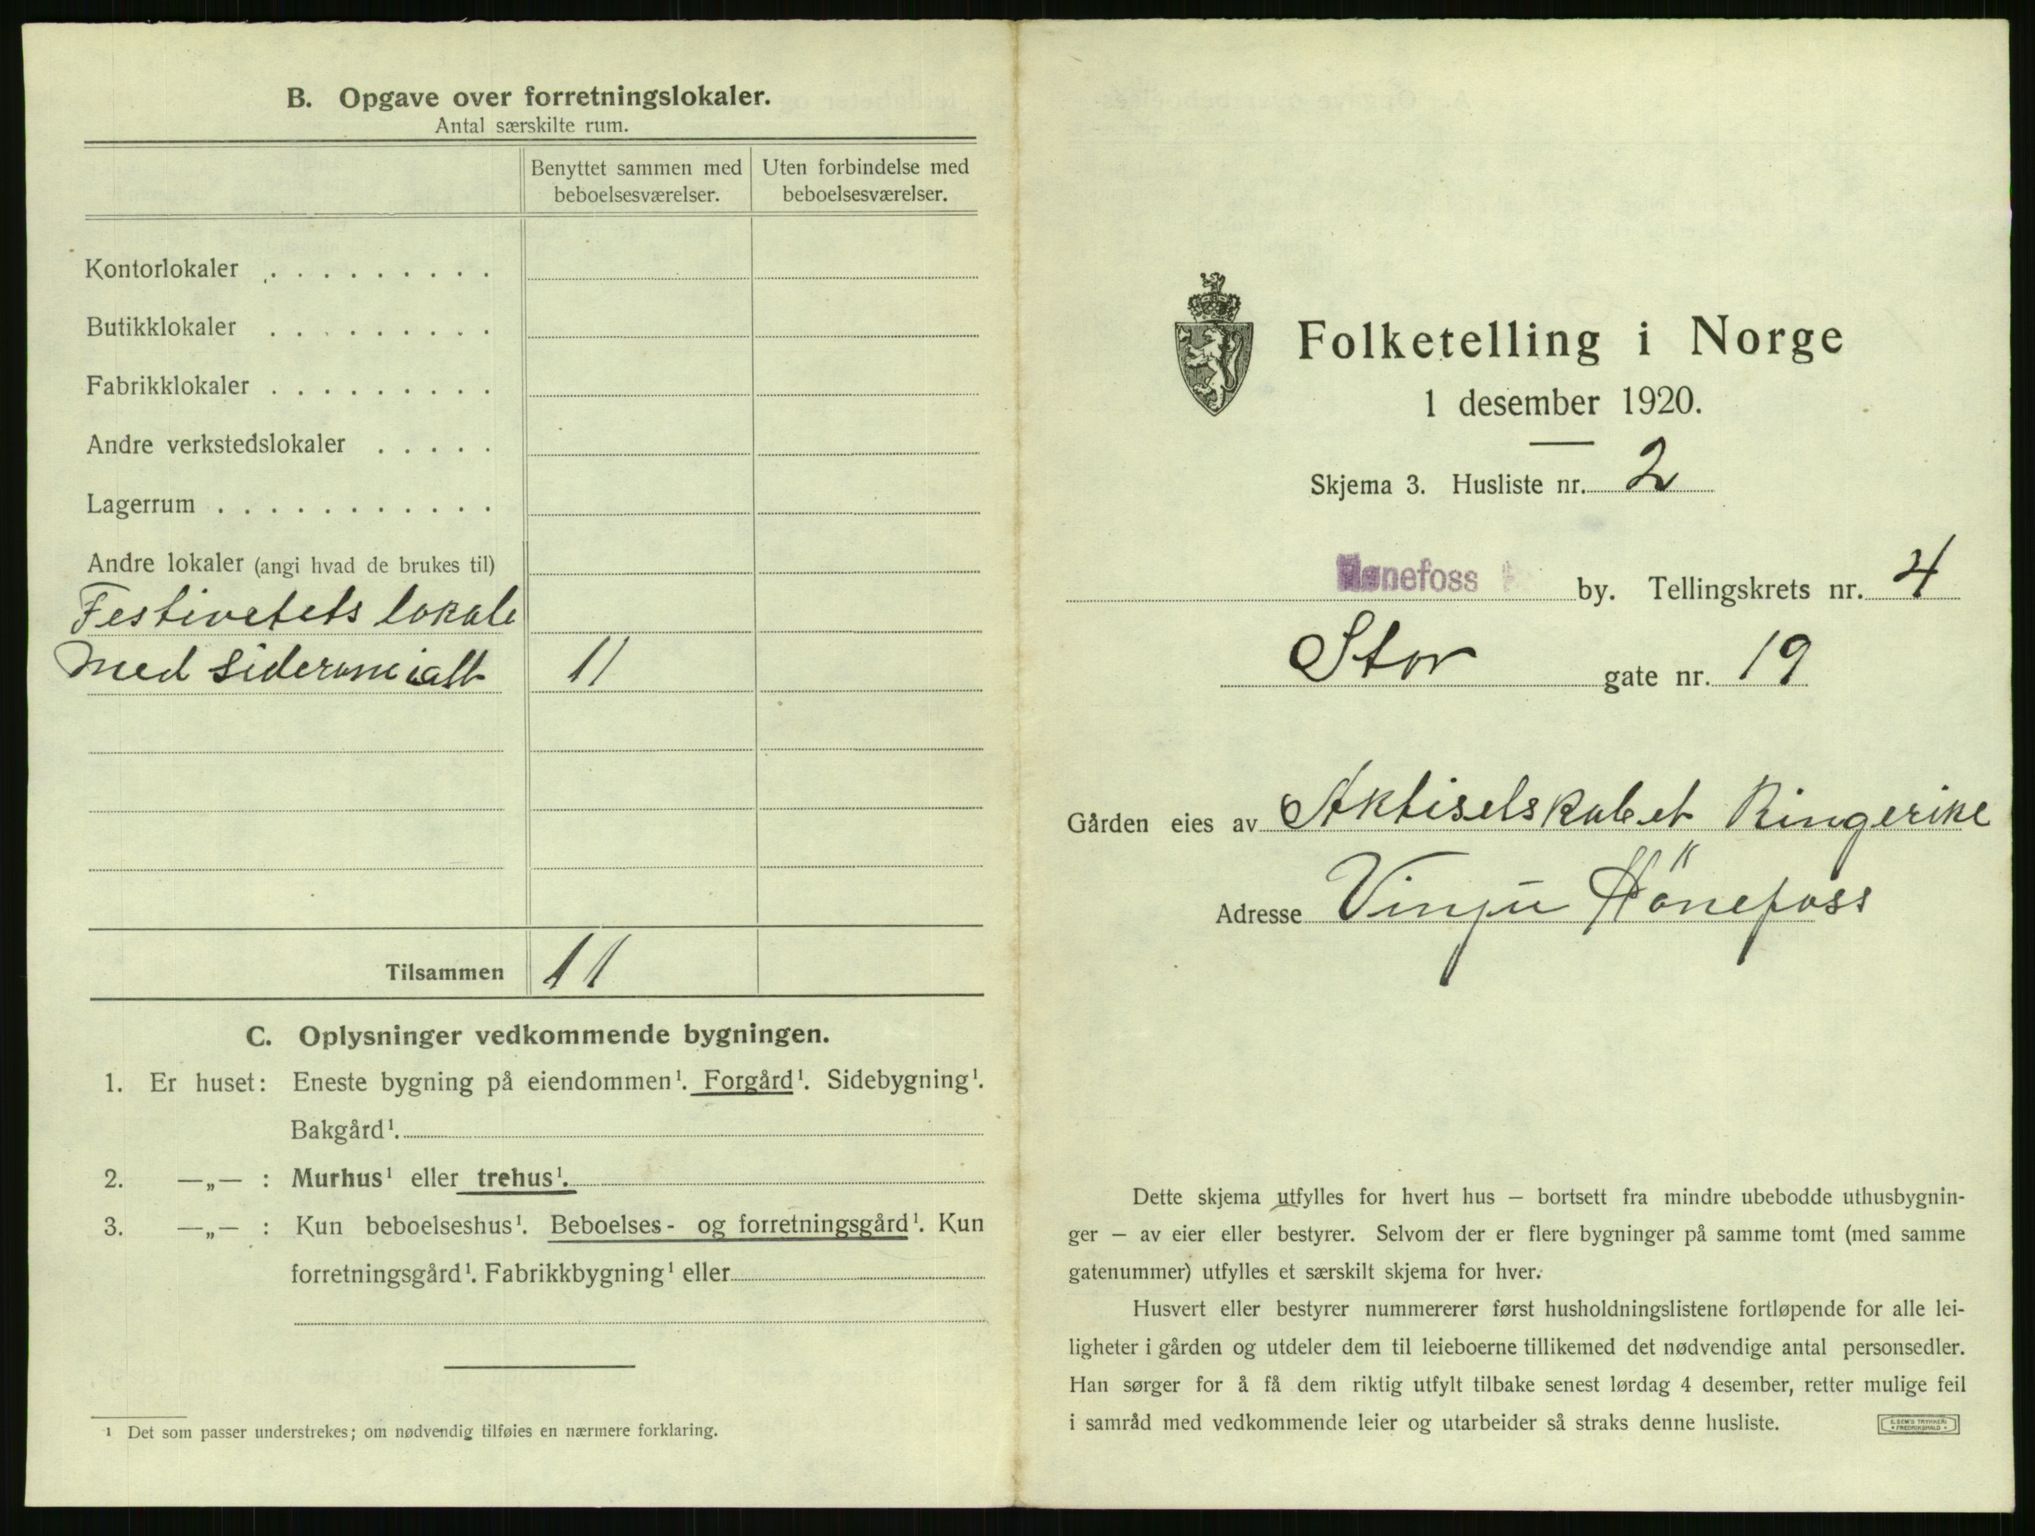 B. Opgave over forretningslokaler.
Antal særskilte rum.
Benyttet sammen med beboelsesværelser.
Uten forbindelse med beboelsesværelser.
Kontorlokaler . . . . . . . . .
Butikklokaler . . . . . . . . .
Fabrikklokaler . . . . . . . . .
Andre verkstedslokaler . . . . .
Lagerrum . . . . . . . . . . .
Andre lokaler (angi hvad de brukes til)
Festivetets lokale
med siderum ialt 11
Tilsammen 11
C. Oplysninger vedkommende bygningen.
1. Er huset: Eneste bygning på eiendommen¹. Forgård¹. Sidebygning¹.
Bakgård¹.
2. —„— : Murhus¹ eller trehus¹.
3. —„— : Kun beboelseshus¹. Beboelses- og forretningsgård¹. Kun
forretningsgård¹. Fabrikkbygning¹ eller
¹ Det som passer understrekes; om nødvendig tilføies en nærmere forklaring.
Folketelling i Norge
1 desember 1920.
Skjema 3. Husliste nr. 2
Hønefoss by. Tellingskrets nr. 4
Stor gate nr. 19
Gården eies av Aktiselskabet Ringerike
Adresse Hönefoss
Dette skjema utfylles for hvert hus – bortsett fra mindre ubebodde uthusbygnin-
ger – av eier eller bestyrer. Selvom der er flere bygninger på samme tomt (med samme
gatenummer) utfylles et særskilt skjema for hver.
Husvert eller bestyrer nummererer først husholdningslistene fortløpende for alle lei-
ligheter i gården og utdeler dem til leieboerne tillikemed det nødvendige antal personsedler.
Han sørger for å få dem riktig utfylt tilbake senest lørdag 4 desember, retter mulige feil
i samråd med vedkommende leier og utarbeider så straks denne husliste.